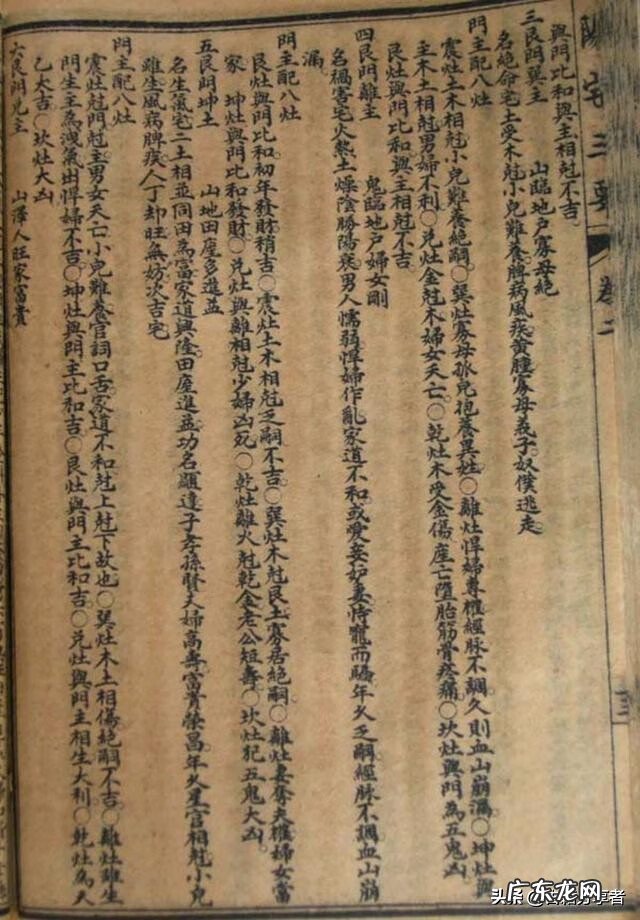 陽宅三要
卷二
與門比和與主相尅不吉
三艮門巽主　　山臨地戶寡母絕
名絕命宅土受木尅小兒難養脾病風疾黃腫寡母義子奴僕逃走
門主配八灶
震灶土木相尅小兒難養絕嗣○巽灶寡母孤兒抱養異姓○離灶悍婦專權經脉不調久則血山崩漏○坤灶與
主木土相尅男婦不利○兌灶金尅木婦女夭亡○乾灶木受金傷產亡墮胎筋骨疼痛○坎灶與門為五鬼凶
艮灶與門比和與主相尅不吉
四艮門離主　　鬼臨地戶婦女剛
名禍害宅火熱土燥陰勝陽衰男人懦弱悍婦作亂家道不和或愛妾妒妻恃寵而驕年久乏嗣經脉不調血山崩
漏
門主配八灶
艮灶與門比和初年發財稍吉○震灶土木相尅乏嗣不吉○巽灶木尅艮土寡居絕嗣○離灶妻奪夫權婦女當
家　坤灶與門比和發財○兌灶與離相尅少婦凶死○乾灶離火尅乾金老公短壽○坎灶犯五鬼大凶
五艮門坤土　　山地田產多進益
名生氣宅二土相並同田為富家道興隆田產進益功名顯達子孝孫賢夫婦高壽富貴榮昌年久星宮相尅小兒
雖生風病脾疾人丁却旺無妨次吉宅
門主配八灶
震灶尅門尅主男女夭亡小兒難養官詞口舌家道不和尅上尅下故也○巽灶木土相傷絕嗣不吉○離灶雖生
門生主為洩氣出悍婦不吉○坤灶與門主比和吉○艮灶與門主比和吉○兌灶與門主相生大利○乾灶為天
乙大吉○坎灶大凶
六艮門兌主　　山澤人旺家富貴
十二
头条
分享者
广东龙网